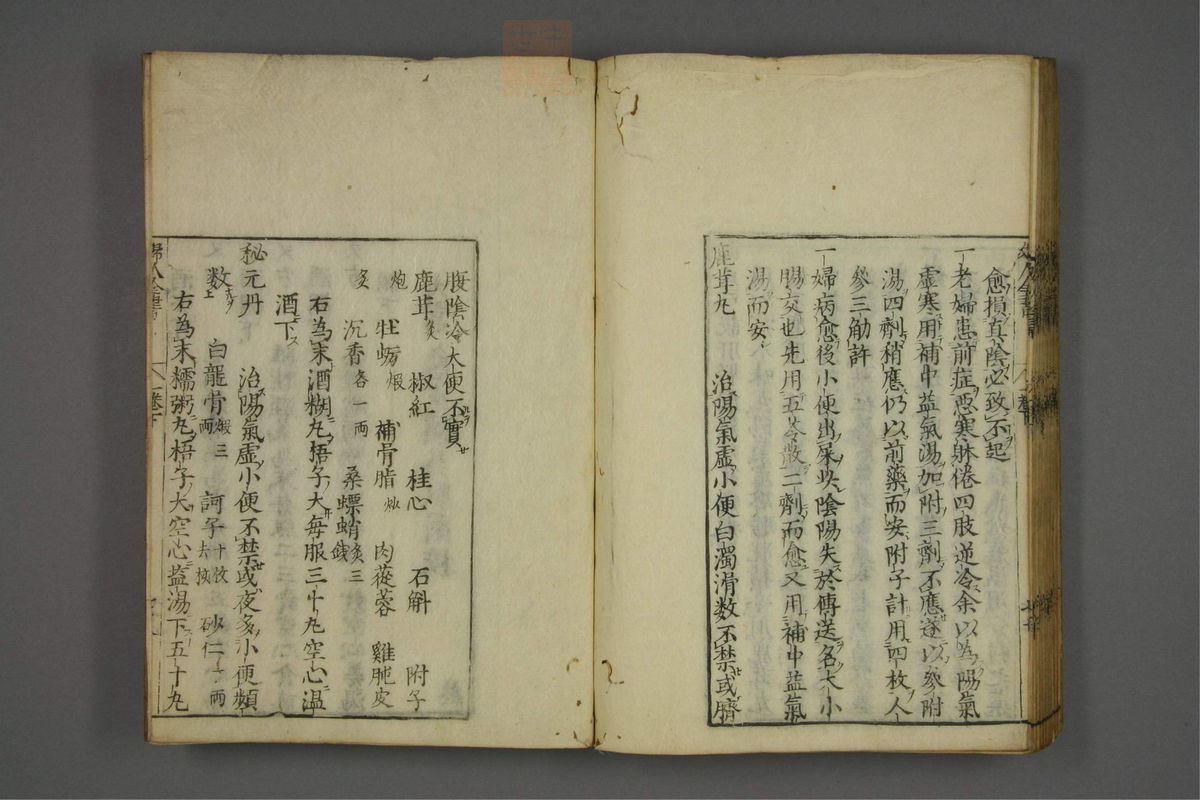 愈損真陰必致不起
一老婦患前症悪寒躰倦四肢逆冷余以為陽氣
虛寒用補中益氣湯加附三劑不應遂以參附
湯四劑稍應仍以前藥而安附子計用四枚人
參三觔許
一婦病愈後小便出屎此陰陽失於傳送名大小
腸交也先用五苓散二劑而愈又用補中益氣
湯而安
鹿茸丸　治陽氣虛小便白濁滑数不禁或臍
腹陰冷大便不實
鹿茸炙　椒紅　桂心　石斛　附子
炮　牡蛎煅　補骨脂炒　肉蓯蓉　雞肶皮
炙　沉香各一両　桑螵蛸炙三錢
右為末酒糊丸梧子大毎服三十丸空心温
酒下
秘元丹　治陽氣虛小便不禁或夜多小便頻
数　白龍骨煅三両　訶子十枚去核　砂仁一両
右為末糯粥丸梧子大空心盐湯下五十丸